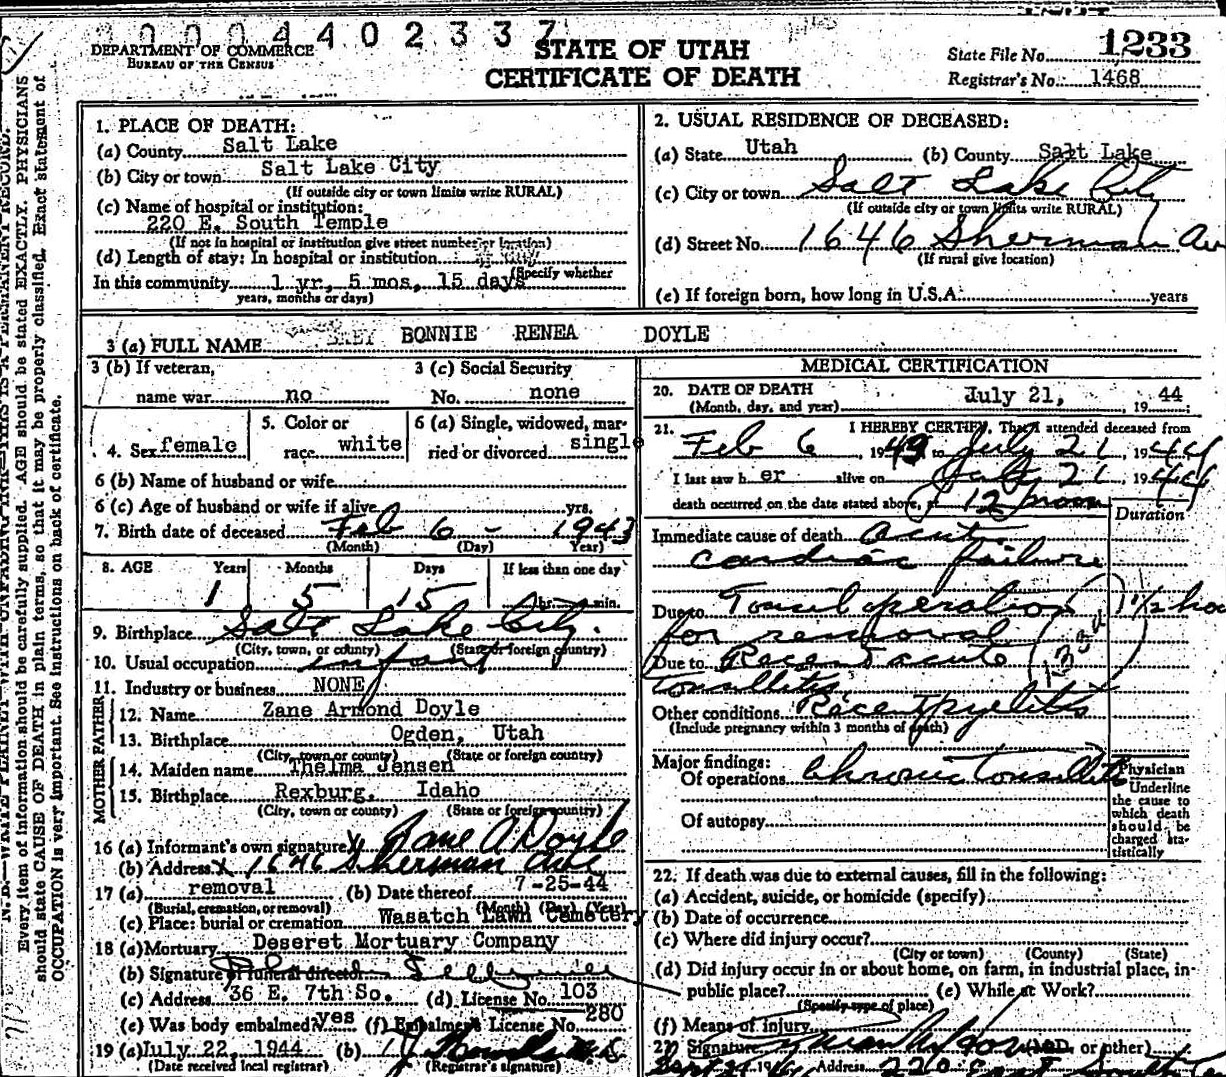 0 0 0 4 4 0 2 3 3 7
DEPARTMENT OF COMMERCE
BUREAU OF THE CENSUS
STATE OF UTAH
CERTIFICATE OF DEATH
State File No. 1233
Registrar's No. 1468
N. B.—WRITE PLAINLY WITH UNFADING INK—THIS IS A PERMANENT RECORD.
Every item of information should be carefully supplied. AGE should be stated EXACTLY. PHYSICIANS
should state CAUSE OF DEATH in plain terms, so that it may be properly classified. Exact statement of
OCCUPATION is very important. See instructions on back of certificate.
1. PLACE OF DEATH:
(a) County Salt Lake
(b) City or town Salt Lake City
(If outside city or town limits write RURAL)
(c) Name of hospital or institution:
220 E. South Temple
(If not in hospital or institution give street number or location)
(d) Length of stay: In hospital or institution
(Specify whether
In this community 1 yr, 5 mos, 15 days
years, months or days)
2. USUAL RESIDENCE OF DECEASED:
(a) State Utah (b) County Salt Lake
(c) City or town Salt Lake City
(If outside city or town limits write RURAL)
(d) Street No. 1646 Sherman Av
(If rural give location)
(e) If foreign born, how long in U.S.A. years
3 (a) FULL NAME BONNIE RENEA DOYLE
3 (b) If veteran,
name war no
3 (c) Social Security
No. none
4. Sex female
5. Color or
race white
6 (a) Single, widowed, mar-
ried or divorced single
6 (b) Name of husband or wife
6 (c) Age of husband or wife if alive yrs.
7. Birth date of deceased Feb 6 - 1943
(Month) (Day) Year)
8. AGE Years Months Days If less than one day
1 5 15 hr. min.
9. Birthplace Salt Lake City.
(City, town, or county) (State or foreign country)
10. Usual occupation infant
11. Industry or business NONE
FATHER
12. Name Zane Armond Doyle
13. Birthplace Ogden, Utah
(City, town or county) (State or foreign country)
MOTHER
14. Maiden name Thelma Jensen
15. Birthplace Rexburg, Idaho
(City, town or county) (State or foreign country)
16 (a) Informant's own signature x Zane A Doyle
(b) Address x 1646 Sherman Ave
17 (a) removal (b) Date thereof 7-25-44
(Burial, cremation, or removal) (Month) (Day) (Year)
(c) Place: burial or cremation Wasatch Lawn Cemetery
18 (a) Mortuary Deseret Mortuary Company
(b) Signature of funeral director
(c) Address 36 E. 7th So. (d) License No. 103
(e) Was body embalmed? yes (f) Embalmer License No. 280
19 (a) July 22, 1944 (b)
(Date received local registrar) (Registrar's signature)
MEDICAL CERTIFICATION
20. DATE OF DEATH
(Month, day, and year) July 21, 19 44;
21. I HEREBY CERTIFY, That I attended deceased from
Feb 6 1943 to July 21, 1944
I last saw h er alive on July 21 1944
death occurred on the date stated above, at 12 noon
Duration
Immediate cause of death Acute
cardiac failure
Due to Tonsil operation 1 1/2 ho
for removal
Due to Recent acute
tonsillitis
Other conditions Recent pyelitis
(Include pregnancy within 3 months of death)
Major findings:
Of operations Chronic tonsillitis
Of autopsy
Physician
Underline
the cause to
which death
should be
charged sta-
tistically
22. If death was due to external causes, fill in the following:
(a) Accident, suicide, or homicide (specify)
(b) Date of occurrence
(c) Where did injury occur?
(City or town) (County) (State)
(d) Did injury occur in or about home, on farm, in industrial place, in-
public place? (e) While at Work?
(Specify type of place)
(f) Means of injury
Signature (M.D. or other)
Address 220 East South